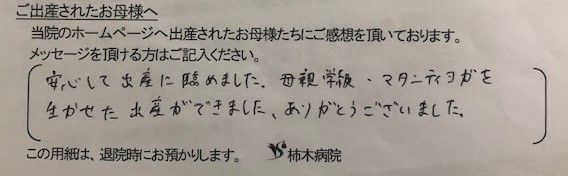 ご出産されたお母様へ
当院のホームページへ出産されたお母様たちにご感想を頂いております。
メッセージを頂ける方はご記入ください。
安心して出産に臨めました。母親学級・マタニティヨガを
生かせた出産ができました、ありがとうございました。
この用紙は、退院時にお預かりします。 柿木病院